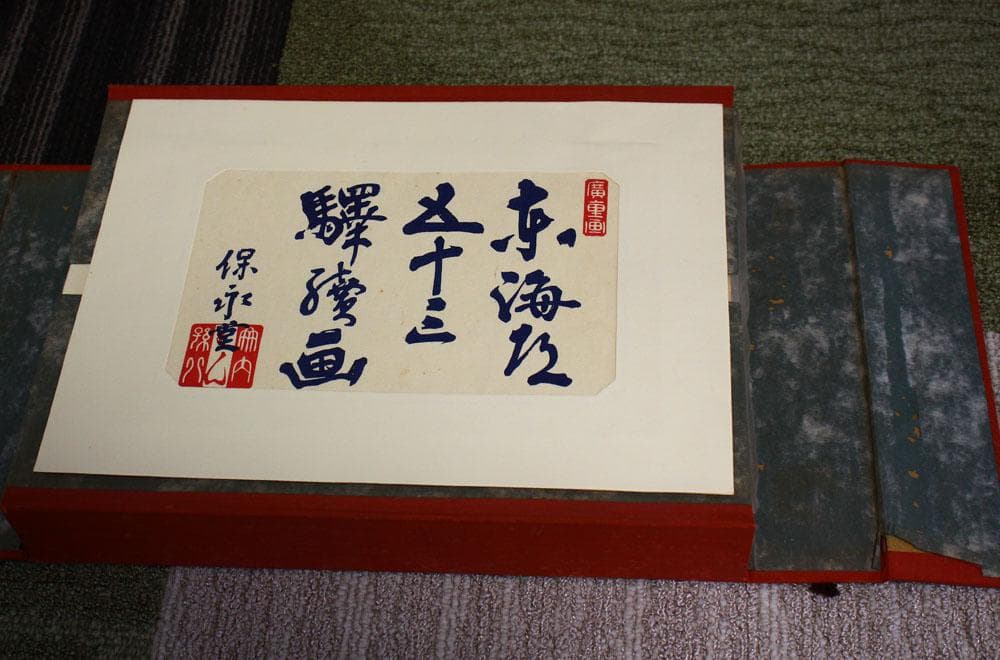 廣重画
東海道
五十三
驛續画
保永堂
竹内
孫八